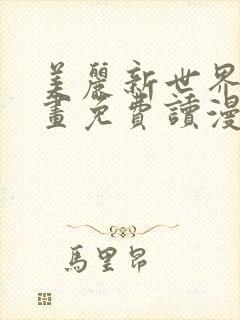 美麗新世界
畫免費讀漫
馬里昂